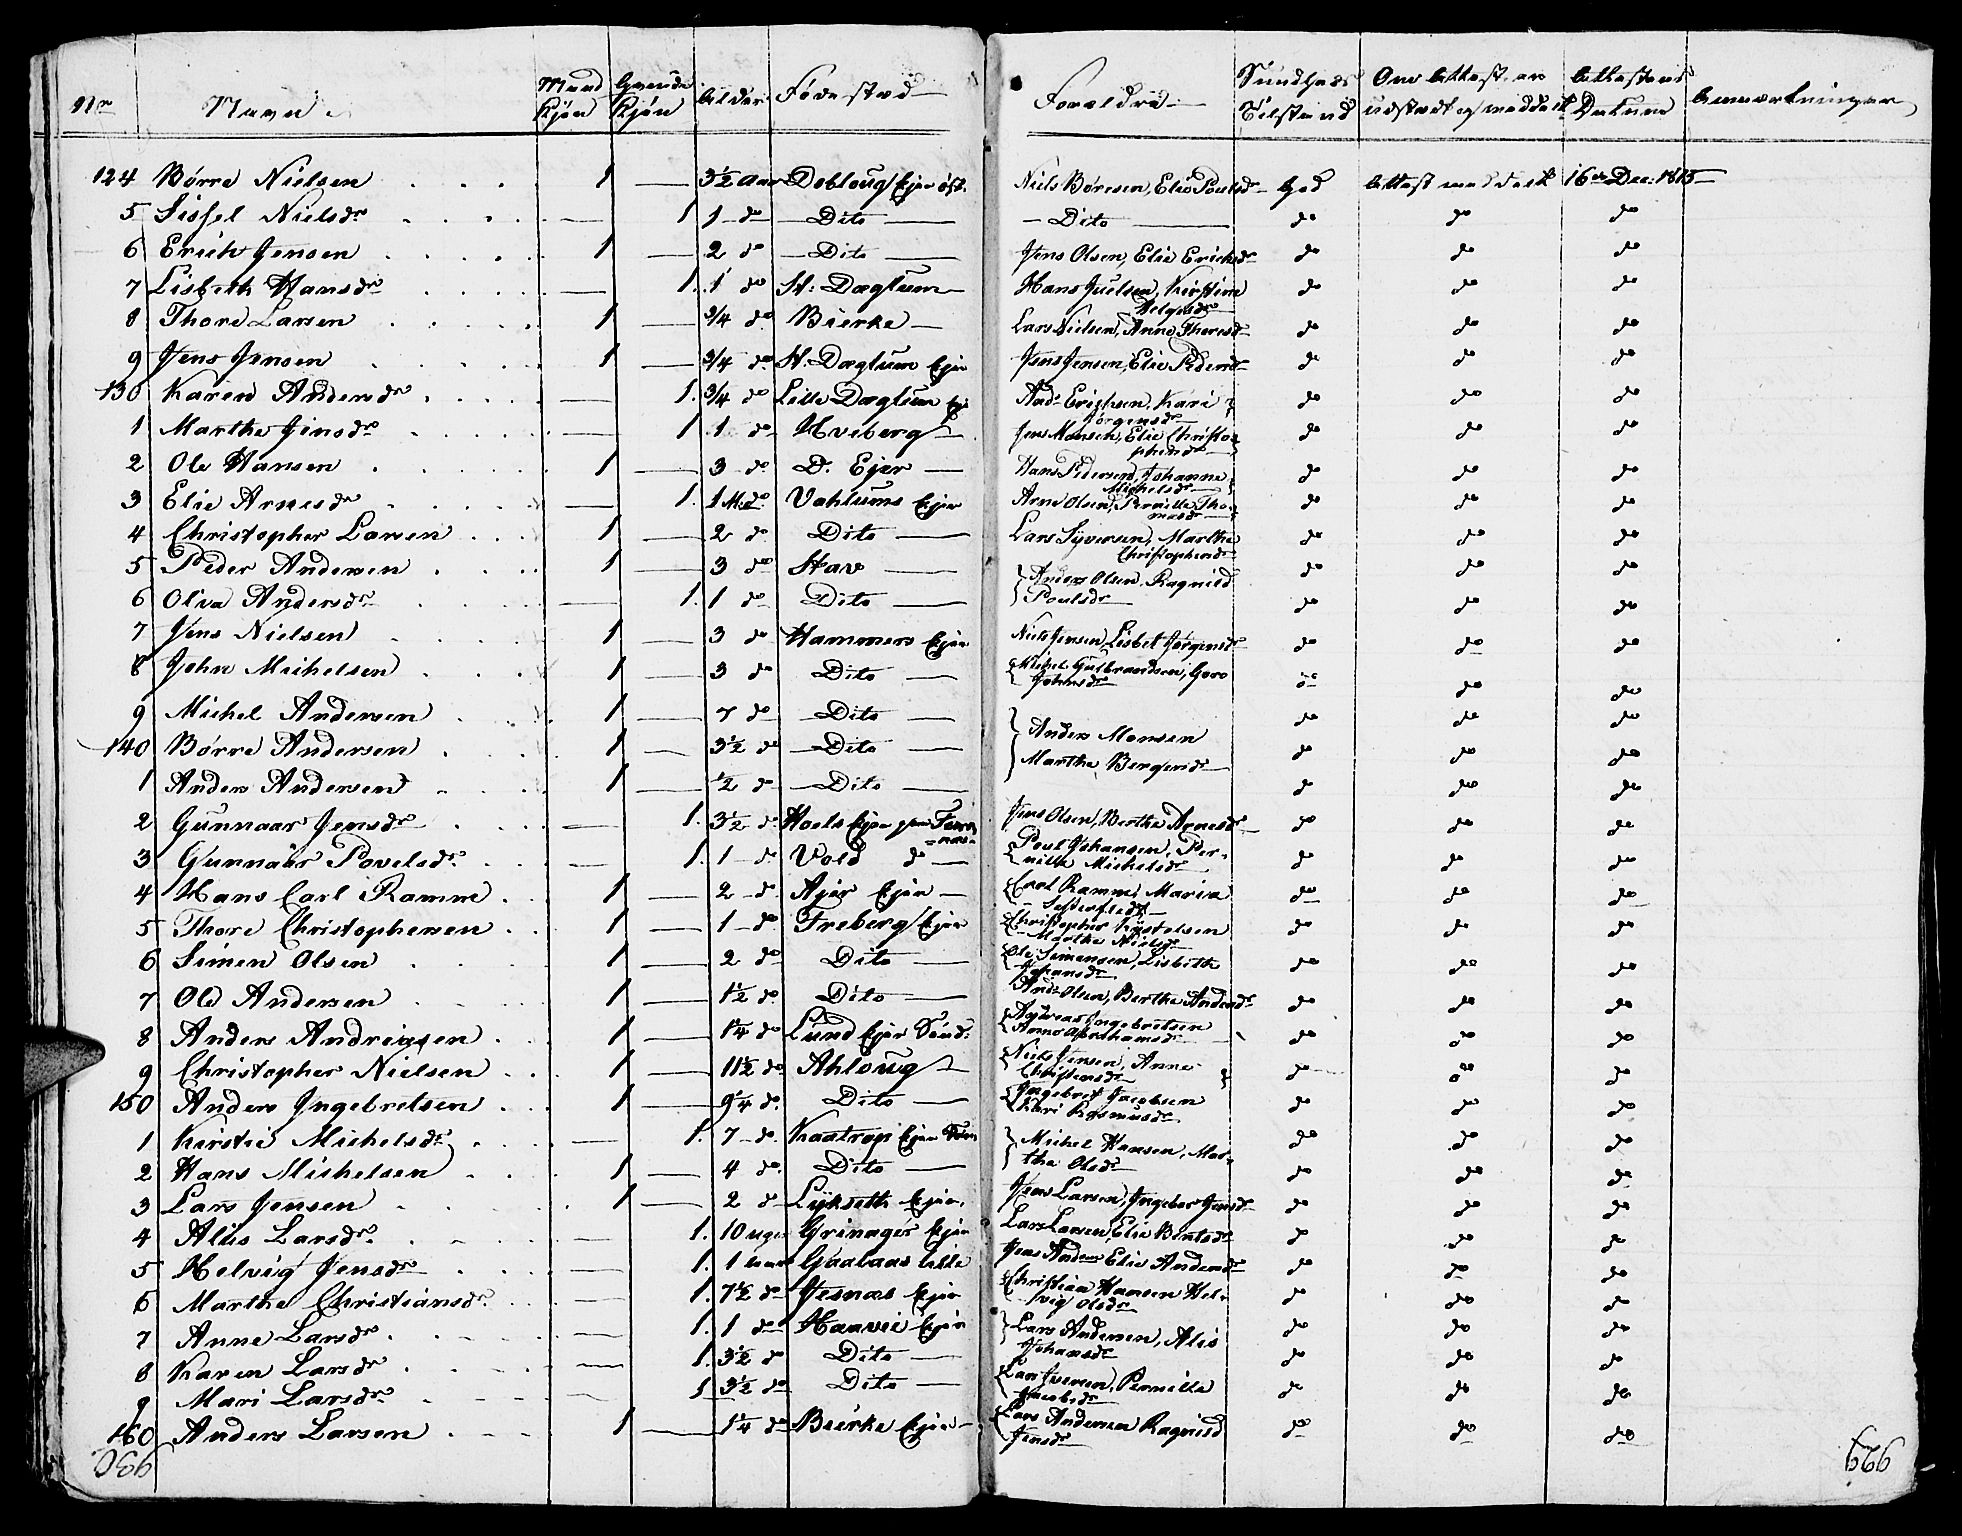 Nr Navn Mand Kjøn Qvinde Kjøn Alder Fødested Forældre Sundheds Tilstand Om Attest er udstædt og meddelt Attestens Datum Anmærkninger
124 Børre Nielsen 1 — 3½ Aar Dobloug Ejer øst. Niels Børesen, Elie Poulsdr God Attest meddelt 16de Dec: 1815
5 Sissel Nielsdr — 1. 1 do Dito — Dito — do do do
6 Erich Jensen 1 — 2 do Dito Jens Olsen, Elie Ericksdr do do do
7 Lisbeth Hansdr — 1. 1 do St: Dæglum Hans Juelsen, Kirstine Helgesdr do do do
8 Thore Larsen 1 — 3/4 do Bierke Lars Nielsen, Anne Thoresdr do do do
9 Jens Jensen 1 — 3/4 do St. Dæglum Ejer Jens Jensen, Elie Pedersdr do do do
130 Karen Andersdr — 1. 3/4 do Lille Dæglum Ejer Ands Erichsen, Kari Jörgensdr do do do
1 Marthe Jensdr — 1 1 do Hveberg Jens Monsen, Elie Christophersdr do do do
2 Ole Hansen 1 — 3 do D. Ejer Hans Pedersen, Johanne Michelsdr do do do
3 Elie Arnesdr — 1. 1 Md: Vahlums Ejer Arne Olsen, Pernille Thomasdr do do do
4 Christopher Larsen 1 — 2 do Dito Lars Syversen, Marthe Christophersdr do do do
5 Peder Andersen 1 — 3 do Stav Anders Olsen, Ragnild do do do
6 Oliva Andersdr — 1. 1 do Dito Poulsdr do do do
7 Jens Nielsen 1 — 3 do Hammers Ejer Niels Jensen, Lisbet Jörgensdr do do do
8 John Michelsen 1 — 3 do Dito Michel Gulbrandsen, Goro Johnsdr do do do
9 Michel Andersen 1 — 7 do Dito Anders Monsen do do do
140 Børre Andersen 1 — 3½ do Dito Marthe Bergersdr do do do
1 Anders Andersen 1 — ½ do Dito do do do
2 Gunnaar Jensdr — 1. 3½ do Hoels Ejer Jens Olsen, Berthe Arnesdr do do do
3 Gunnaar Povelsdr — 1. 1 do Vold do Poul Johansen, Pernille Michelsdr do do do
4 Hans Carl Ramm 1 — 2 do Ajer Ejer Carl Ramm, Maria do do do
5 Thore Christophersen 1 — 1 do Freberg Ejer Christopher Tystelsen Marthe Nielsdr do do do
6 Simen Olsen 1 — 2 do Dito Ole Simensen, Lisbeth Johansdr do do do
7 Ole Andersen 1 — 1½ do Dito Ands Olsen, Berthe Andersdr do do do
8 Anders Andreassen 1 — 1¼ do Lund Ejer Andreas Ingebretsen Anne Abrahamsdr do do do
9 Christopher Nielsen 1 — 11½ do Ahloug Niels Jensen, Anne Christensdr do do do
150 Anders Ingebretsen 1 — 9¼ do Dito Ingebret Jacobsen Kari Rasmusdr do do do
1 Kirstie Michelsdr — 1. 7 do Kaatrop Ejer Michel Hansen, Marthe Olsdr do do do
2 Hans Michelsen 1 — 4 do Dito do do do
3 Lars Jensen 1 — 2 do Lykseth Ejer Jens Larsen, Ingebor Jensdr do do do
4 Alis Larsdr 1. 10 uger Grinager Ejer Lars Larsen, Elie Berntsdr do do do
5 Helvig Jensdr — 1. 1 Aar Gaalaas Lille Jens Anders: Elie Andersdr do do do
6 Marthe Christiansdr — 1. 7½ do Jesnæs Ejer Christian Hansen Helvig Olsdr do do do
7 Anne Larsdr — 1. 1 do Haavie Ejer Lars Andersen, Alis Johansdr do do do
8 Karen Larsdr — 1. 3½ do Dito do do do
9 Mari Larsdr — 1 3½ do Dito Lars Iversen, Pernille Jacobsdr do do do
160 Anders Larsen 1 — 1¼ do Bierke Ejer Lars Andersen Ragnild Jensdr do do do
930 929